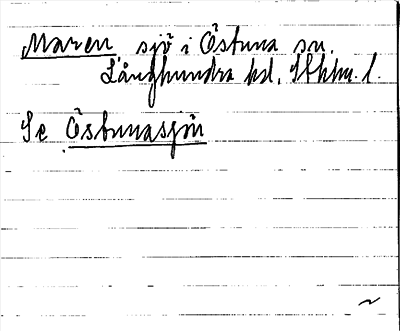 Maren, sjö i Östuna sn.
Långhundra hd, Sthlm. l.
Se Östunasjön
~